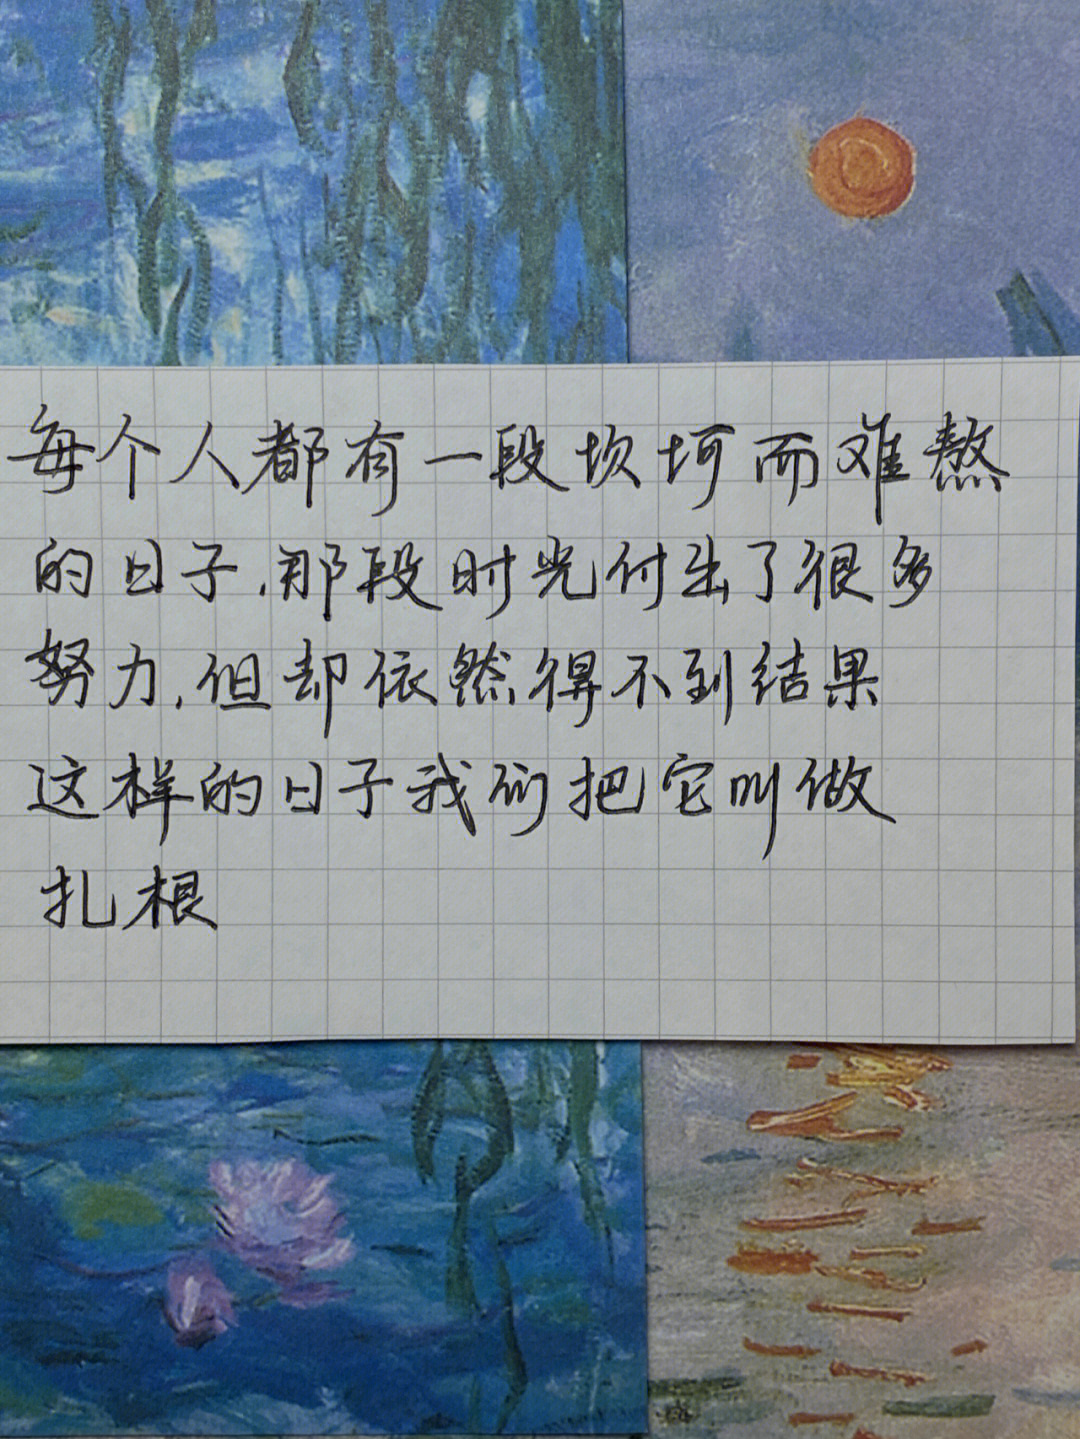 每个人都有一段坎坷而难熬
的日子,那段时光付出了很多
努力,但却依然得不到结果
这样的日子我们把它叫做
扎根